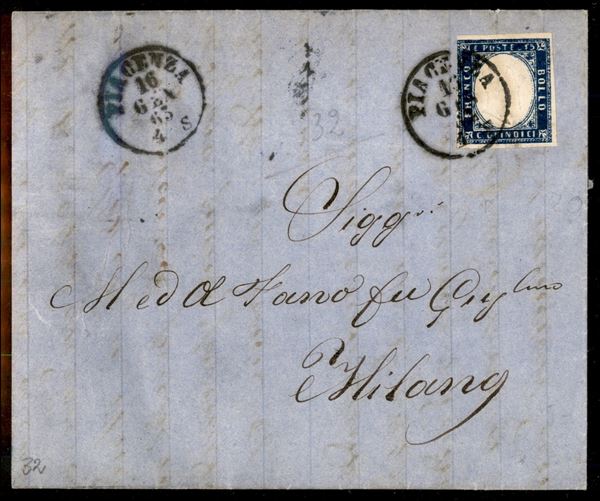 PIACENZA
16
GEN
63
4 S
PIACENZA
16
G
C. E POSTE 15
FRANCO
BOLLO
C. QUINDICI
32
Sigg.ri
Med & Vano fu Gug lmo
Milano
32